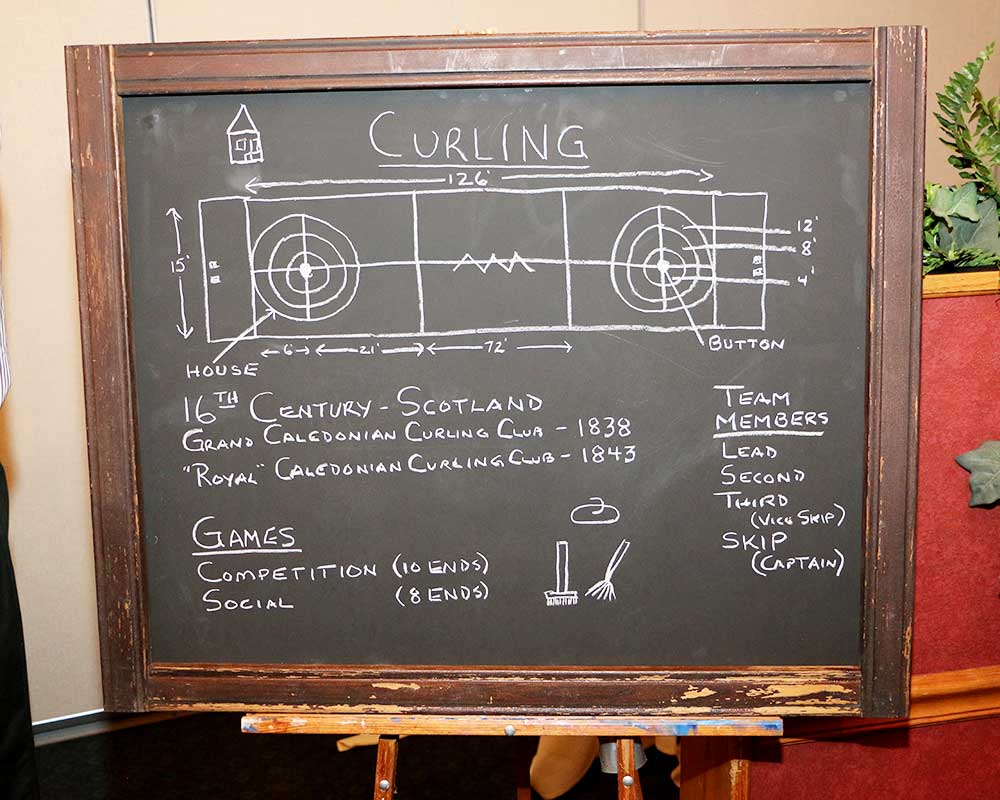 CURLING
126'
12'
8'
15'
4'
6' 21' 72'
BUTTON
HOUSE
16TH CENTURY - SCOTLAND
GRAND CALEDONIAN CURLING CLUB - 1838
"ROYAL" CALEDONIAN CURLING CLUB - 1843
TEAM
MEMBERS
LEAD
SECOND
THIRD
(VICE SKIP)
SKIP
(CAPTAIN)
GAMES
COMPETITION (10 ENDS)
SOCIAL (8 ENDS)